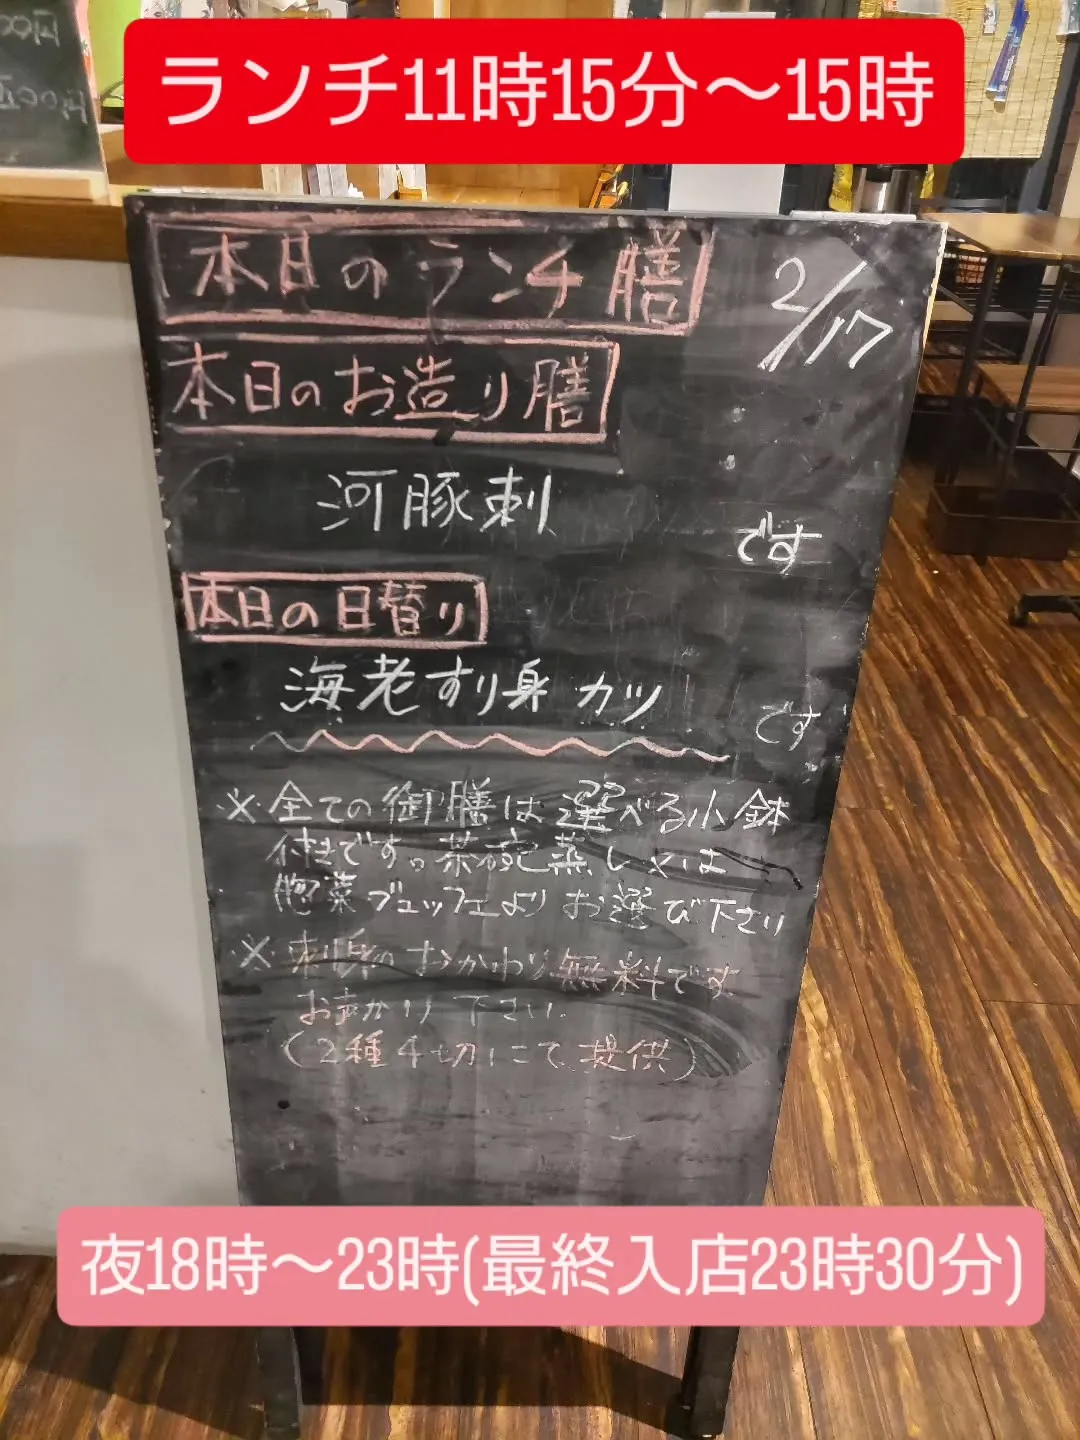 00円
500円
ランチ11時15分～15時
本日のランチ膳
2/17
本日のお造り膳
河豚刺
です
本日の日替り
海老すり身カツ
です
※全ての御膳は選べる小鉢
付きです。茶碗蒸し又は
惣菜ブュッフェよりお選び下さい
※刺身のおかわり無料です
お声かけ下さい
(2種4切にて提供)
夜18時～23時(最終入店23時30分)